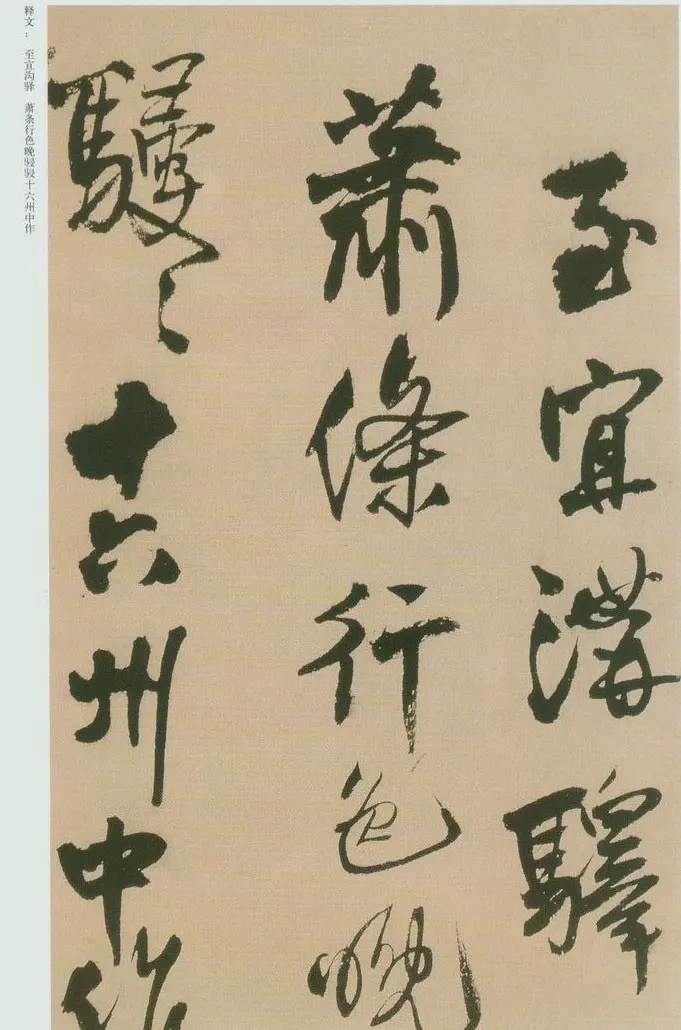 至宜溝驛
蕭條行色晚
駸〻十六州中作
释文： 至宜沟驿 萧条行色晚骎骎十六州中作